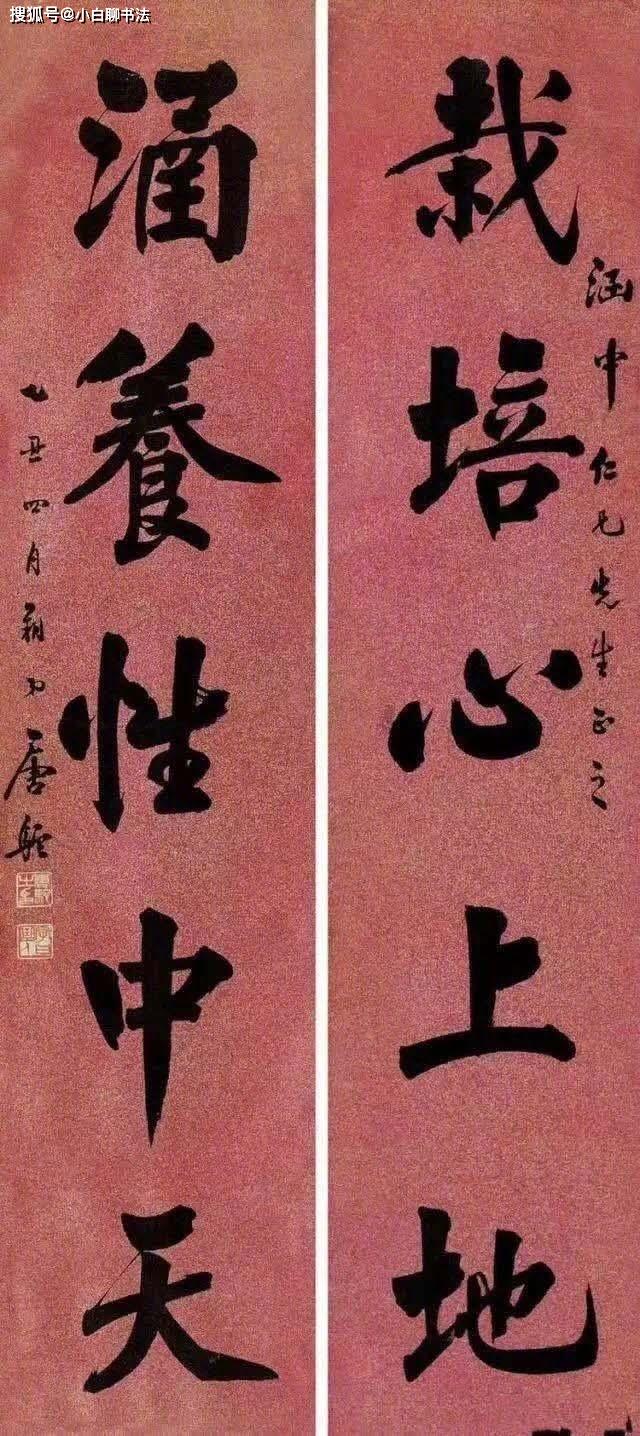 搜狐号@小白聊书法
涵中仁兄先生正之
栽培心上地
涵養性中天
乙丑四月朔弟唐駝